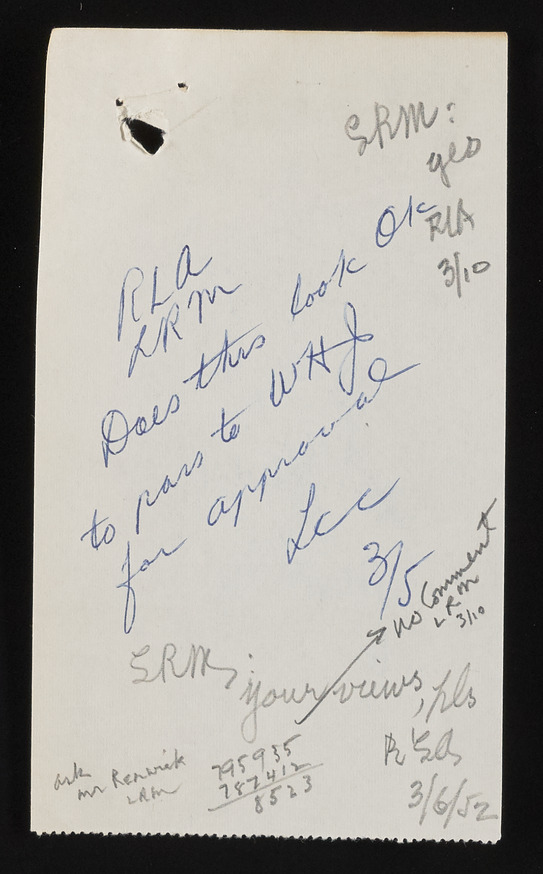 LRM:
yes
RLA
3/10
RLA
LRM
Does this look OK
to pass to WHJ
for approval
Lee
3/5
No Comment
LRM
3/10
LRM:
your views, pls
RLA
3/6/52
ask
mr Renwick
LRM
795935
787412
8523